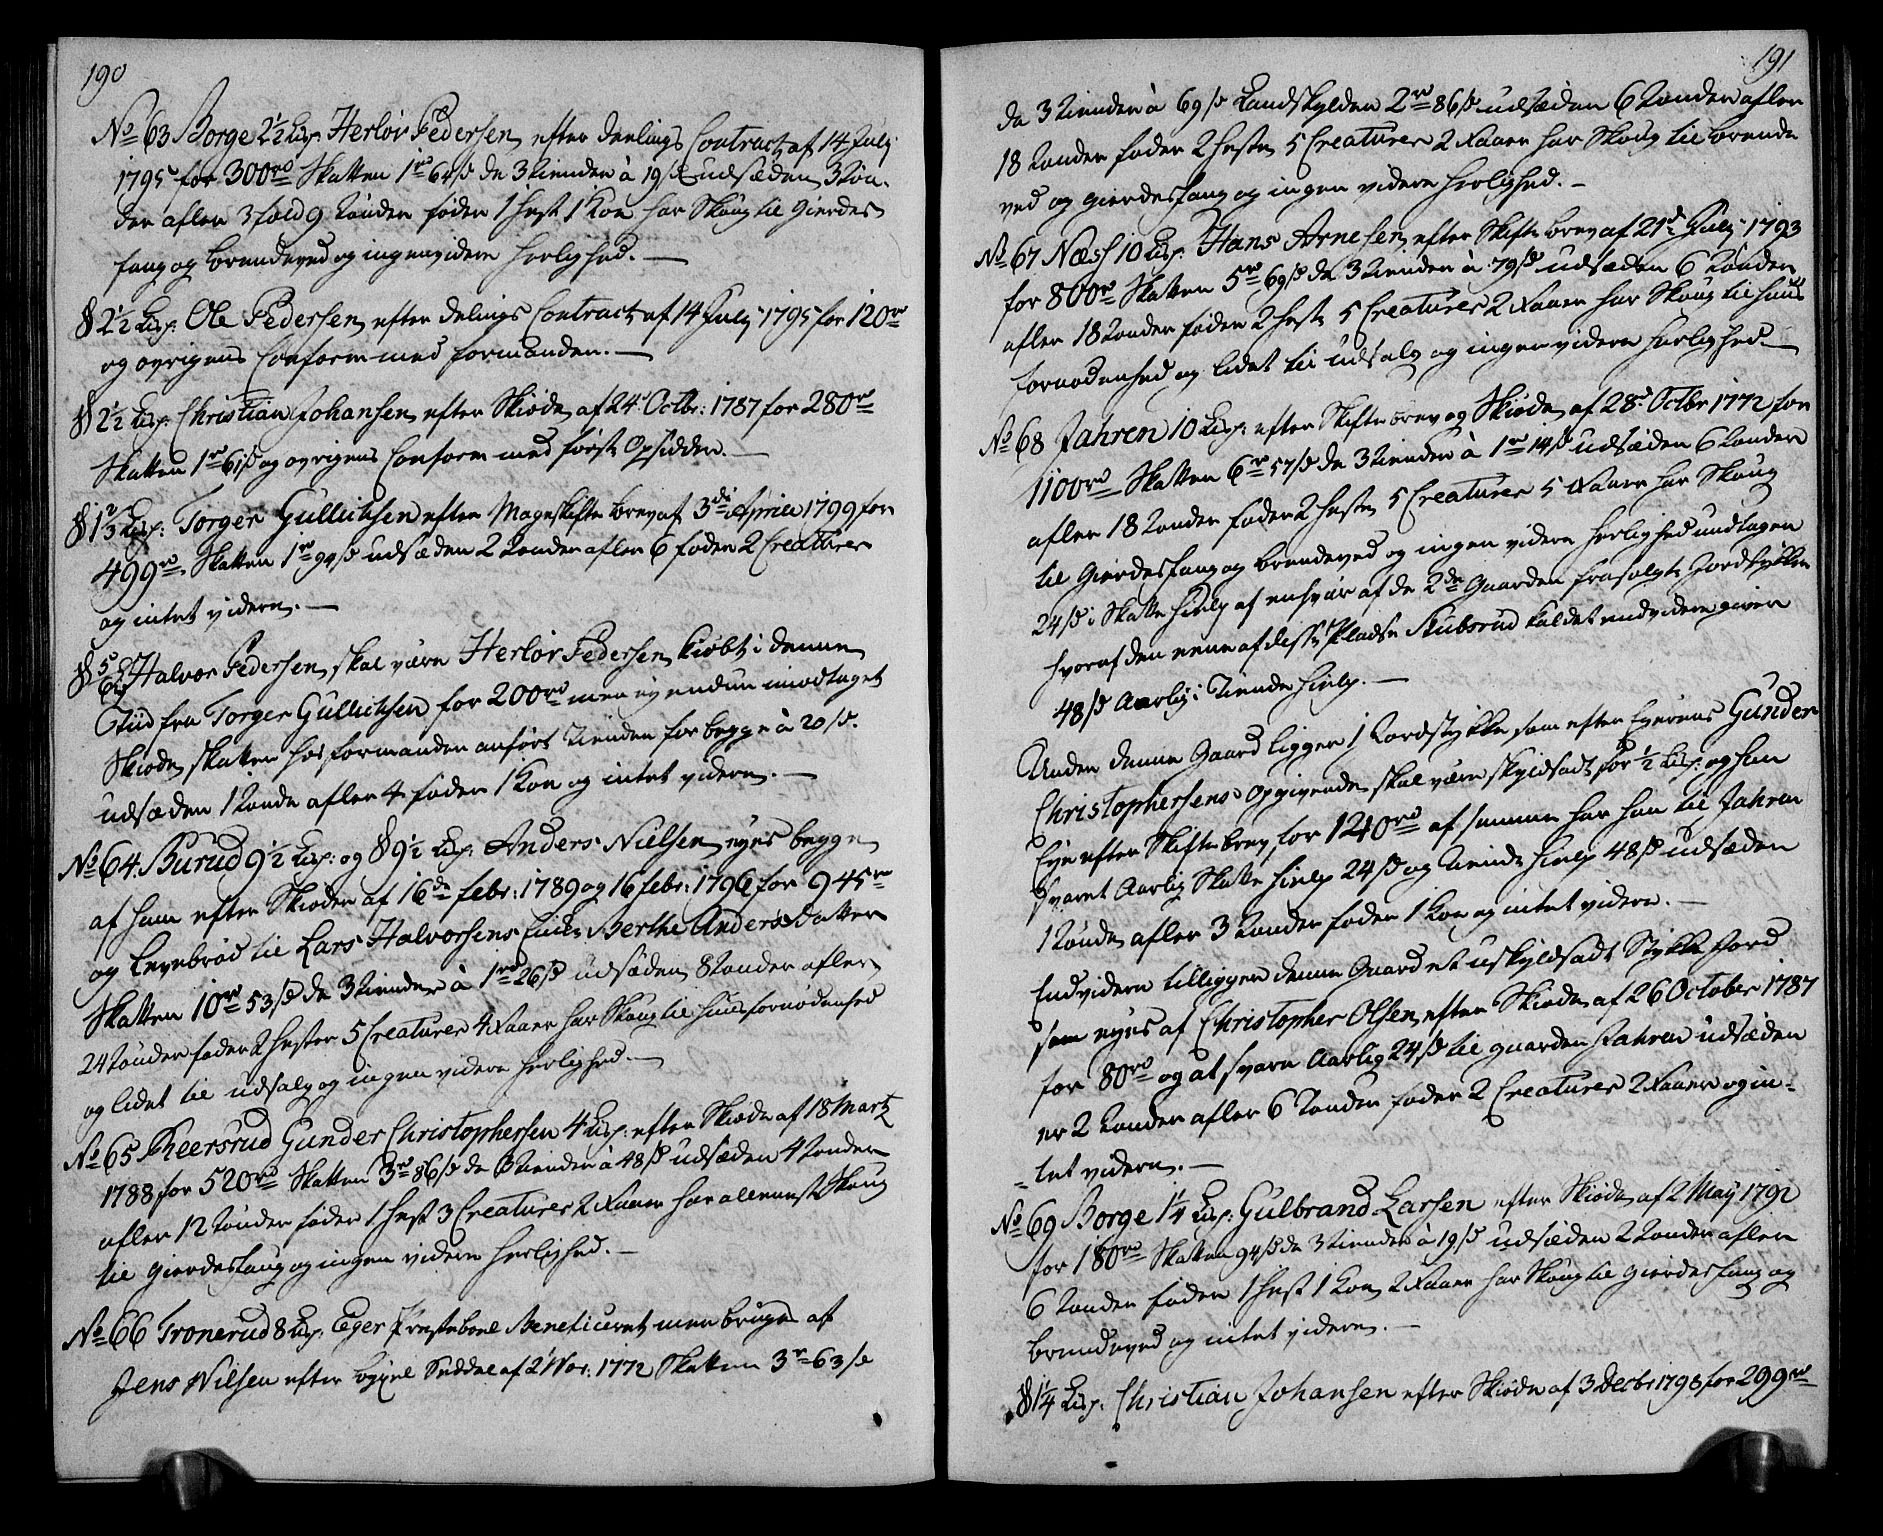 190
No 63 Borge 2½ Lisp: Herlov Pedersen efter deelings Contract af 14 July
1795 for 300 rd Skatten 1 rd 64 s de 3 tiender à 19 s udsæden 3 tøn-
der afler 3 fold 9 tønder føder 1 Hest 1 Koe har Skoug til Gierdes
fang og brendeved og ingen videre herlighed. —
§ 2½ Lisp: Ole Pedersen efter delings Contract af 14 July 1795 for 120 rd
og øvrigens Conform med formanden. —
§ 2½ Lisp: Christian Johansen efter Skiøde af 24 Octbr: 1787 for 280 rd
Skatten 1 rd 61 s og øvrigens Conform med første Opsidder. —
§ 1⅔ Lisp: Torger Gullichsen efter Mageskifte brev af 3de April 1799 for
499 rd Skatten 1 rd 94 s udsæden 2 tønder afler 6 føder 2 Creaturer
og intet videre. —
§ 5/6 Halvor Pedersen skal være Herlov Pedersen kiøbt i denne
Tiid fra Torger Gullichsen for 200 rd men ey endnu imodtaget
Skiøde, skatten hos formanden anført Tienden for begge à 20 s.
udsæden 1 tønde afler 4 føder 1 Koe og intet videre. —
No 64. Burud 9½ Lisp: og § 9½ Lisp: Anders Nielsen eyes begge
af ham efter Skiøder af 16de febr: 1789 og 16 febr: 1796 for 945 rd
og Levebrød til Lars Halvorsens Enke Berthe Anders Datter
Skatten 10 rd 53 s de 3 tiender à 1 rd 26 s udsæden 8 tønder afler
24 tønder føder 2 Hester 5 Creaturer 4 Faaer har Skoug til huusfornødenhed
og lidet til udsalg og ingen videre herlighed. —
No 65 Keersrud Gunder Christophersen 4 Lisp: efter Skiøde af 18 Martz
1788 for 520 rd Skatten 3 rd 86 s de 3 tiender à 48 s udsæden 4 tønder
afler 12 tønder føder 1 Hest 3 Creaturer 2 Faaer har alleneste Skoug
til gierdesfang og ingen videre herlighed. —
No 66 Tronerud 8 Lisp: Eger Præstebole Beneficeret men bruges af
Jens Nilsen efter bøxel Seddel af 2 Nov: 1772 Skatten 3 r 63 s
191
de 3 tiender à 69 s Landskylden 2 rd 86 s udsæden 6 tønder afler
18 tønder føder 2 heste 5 Creaturer 2 Faaer har Skoug til brende
ved og gierdesfang og ingen videre herlighed. —
No 67 Næss 10 Lisp: Hans Arnesen efter Skifte brev af 21d July 1793
for 800 rd Skatten 5 rd 69 s de 3 tiender à 79 s udsæden 6 tønder
afler 18 tønder føder 2 heste 5 Creaturer 2 Faaer har Skoug til huus
fornødenhed og lidet til udsalg og ingen videre herlighed —
No 68 Jahren 10 Lisp: efter Skifte brev og Skiøde af 28d Octbr 1772 for
1100 rd Skatten 6 rd 57 s de 3 tiender à 1 rd 14 s udsæden 6 tønder
afler 18 tønder føder 2 heste 5 Creaturer 5 Faaer har Skoug
til Gierdesfang og brendeved og ingen videre herlighed undtagen
24 s i Skatte hielp af enhver af de 2de Gaarden frasolgte Jordstykker
hvoraf den eene af dessen Pladse Skubsrud kaldet endvidere giver
48 s Aarlig i Tiende hielp. —
Under denne Gaard ligger 1 Jordstykke som efter Eyerens Gunder
Christophersens Opgivende skal være skyldsadt for ½ Lisp: og han
Eye efter Skifte brev for 140 rd af samme har han til Jahren
svaret Aarlig Skatte hielp 24 s og tiende hielp 48 s udsæden
1 tønde afler 3 tønder føder 1 Koe og intet videre. —
Endvidere tilligger denne Gaard et uskyldsadt Stykke Jord
som eyes af Christopher Olsen efter Skiøde af 26 October 1787
for 80 rd og at svare Aarlig 24 s til gaarden Jahren udsæden
er 2 tønder afler 6 tønder føder 2 Creaturer 2 Faaer og in-
-tet videre. —
No 69 Borge 1¼ Lisp: Gulbrand Larsen efter Skiøde af 2 May 1792
for 180 rd Skatten 94 s de 3 tiender à 19 s udsæden 2 tønder afler
6 tønder føder 1 hest 1 Koe 2 Faaer har Skoug til gierdesfang og
brendeved og intet videre. —
§ 1¼ Lisp: Christian Johansen efter Skiøde af 3 Decbr 1798 for 299 rd